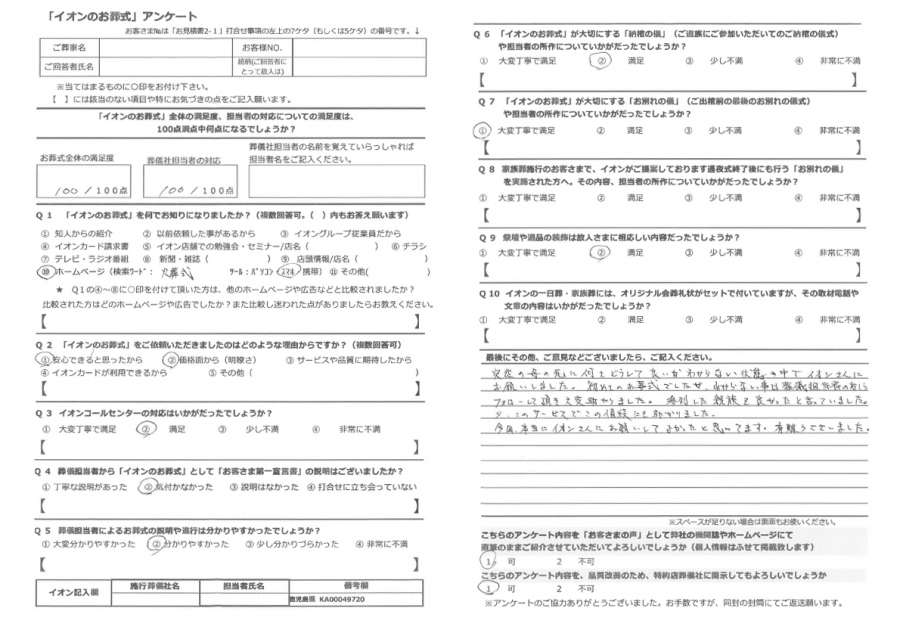 「イオンのお葬式」アンケート
お客さま№は「お見積書2-1」打合せ事項の左上の7ケタ（もしくは5ケタ）の番号です。↓
ご葬家名
お客様NO.
ご回答者氏名
続柄(ご回答者にとって故人は)
※当てはまるものに○印をお付け下さい。
【　】には該当のない項目や特にお気づきの点をご記入願います。
「イオンのお葬式」全体の満足度、担当者の対応についての満足度は、
100点満点中何点になるでしょうか？
お葬式全体の満足度
葬儀社担当者の対応
葬儀社担当者の名前を覚えていらっしゃれば
担当者名をご記入ください。
100 / 100点
100 / 100点
Q 1　「イオンのお葬式」を何でお知りになりましたか？（複数回答可。（　）内もお答え願います）
① 知人からの紹介　② 以前依頼した事があるから　③ イオングループ従業員だから
④ イオンカード請求書　⑤ イオン店舗での勉強会・セミナー/店名（　）　⑥ チラシ
⑦ テレビ・ラジオ番組　⑧ 新聞・雑誌（　）　⑨ 店頭情報/店名（　）
⑩ ホームページ（検索ﾜｰﾄﾞ：火葬式　ﾂｰﾙ：ﾊﾟｿｺﾝ ｽﾏﾎ 携帯）　⑪ その他（　）
★　Q１の④～⑧に○印を付けて頂いた方は、他のホームページや広告などと比較されましたか？
比較された方はどのホームページや広告でしたか？また比較し迷われた点がありましたらお教えください。
【　】
Q 2　「イオンのお葬式」をご依頼いただきましたのはどのような理由からですか？（複数回答可）
① 安心できると思ったから　② 価格面から（明瞭さ）　③ サービスや品質に期待したから
④ イオンカードが利用できるから　⑤ その他（　）
【　】
Q 3　イオンコールセンターの対応はいかがだったでしょうか？
①　大変丁寧で満足　②　満足　③　少し不満　④　非常に不満
【　】
Q 4　葬儀担当者から「イオンのお葬式」として「お客さま第一宣言書」の説明はございましたか？
① 丁寧な説明があった　② 気付かなかった　③ 説明はなかった　④ 打合せに立ち会っていない
【　】
Q 5　葬儀担当者によるお葬式の説明や進行は分かりやすかったでしょうか？
① 大変分かりやすかった　② 分かりやすかった　③ 少し分かりづらかった　④ 非常に不満
【　】
イオン記入欄
施行葬儀社名
担当者氏名
備考欄
鹿児島県 KA00049720
Q 6　「イオンのお葬式」が大切にする「納棺の儀」（ご遺族にご参加いただいてのご納棺の儀式）
や担当者の所作についていかがだったでしょうか？
①　大変丁寧で満足　②　満足　③　少し不満　④　非常に不満
【　】
Q 7　「イオンのお葬式」が大切にする「お別れの儀」（ご出棺前の最後のお別れの儀式）
や担当者の所作についていかがだったでしょうか？
①　大変丁寧で満足　②　満足　③　少し不満　④　非常に不満
【　】
Q 8　家族葬施行のお客さまで、イオンがご提案しております通夜式終了後にも行う「お別れの儀」
を実施された方へ。その内容、担当者の所作についていかがだったでしょうか？
①　大変丁寧で満足　②　満足　③　少し不満　④　非常に不満
【　】
Q 9　祭壇や遺品の装飾は故人さまに相応しい内容だったでしょうか？
①　大変丁寧で満足　②　満足　③　少し不満　④　非常に不満
【　】
Q 10　イオンの一日葬・家族葬には、オリジナル会葬礼状がセットで付いていますが、その取材電話や
文章の内容はいかがだったでしょうか？
①　大変丁寧で満足　②　満足　③　少し不満　④　非常に不満
【　】
最後にその他、ご意見などございましたら、ご記入ください。
突然の母の死に何をどうして良いかわからない状態の中でイオンさんに
お願いしました。初めてのお葬式でしたが、わからない事は葬儀担当者の方に
フォローして頂き大変助かりました。参列した親族も良かったと言っていました。
又、このサービスでこの値段にも助かりました。
今回、本当にイオンさんにお願いしてよかったと思ってます。有難うございました。
※スペースが足りない場合は裏面もお使いください。
こちらのアンケート内容を「お客さまの声」として弊社の機関誌やホームページにて
直筆のままご紹介させていただいてよろしいでしょうか（個人情報はふせて掲載致します）
1　可　2　不可
こちらのアンケート内容を、品質改善のため、特約店葬儀社に開示してもよろしいでしょうか
1　可　2　不可
※アンケートのご協力ありがとうございました。お手数ですが、同封の封筒にてご返送願います。